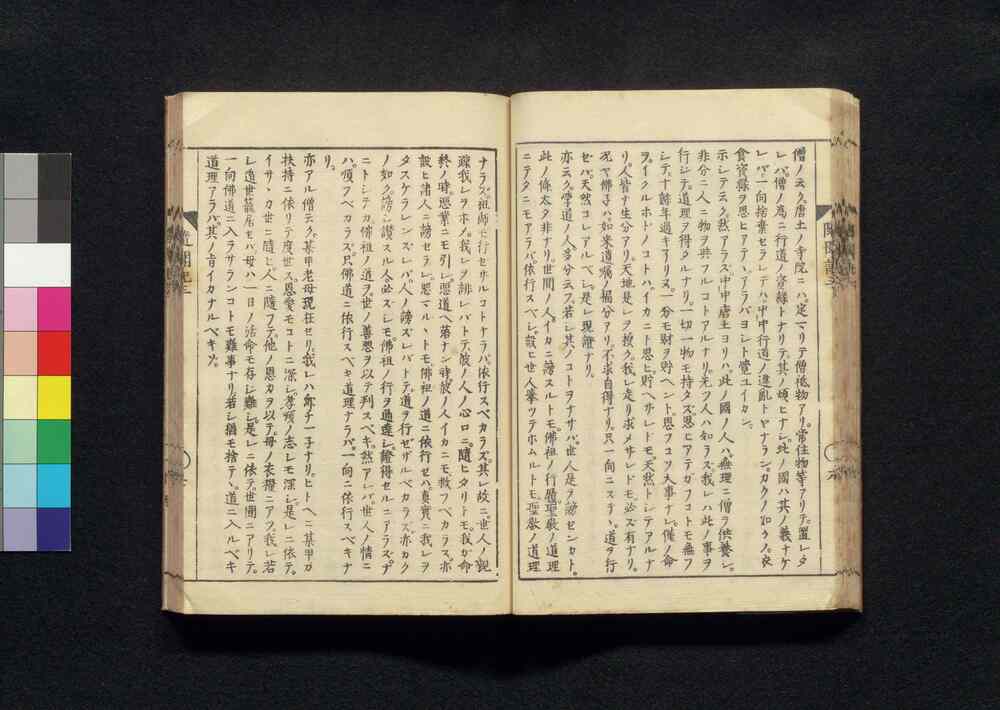 僧ノ云ク唐土ノ寺院ニハ定マリテ僧祇物アリ常住物等アリテ置レタ
レバ僧ノ為ニ行道ノ資縁トナリテ其ノ煩ヒナシ此ノ國ハ其ノ義ナケ
レバ一向捨棄セラレテハ中中行道ノ違亂トヤナランカクノ如クノ衣
食資縁ヲ思ヒアテヽアラバヨシト覺ユイカン
示シテ云ク然アラズ中中唐土ヨリハ此ノ國ノ人ハ無理ニ僧ヲ供養シ
非分ニ人ニ物ヲ與フルコトアルナリ先ツ人ハ如ラズ我レハ此ノ事ヲ
行シテ道理ヲ得タルナリ一切一物モ持タズ思ヒアテガフコトモ無フ
シテ十餘年過キアリヌ一分モ財ヲ貯ヘント思フコソ大事ナレ僅ノ命
ヲイクルホドノコトハイカニト思ヒ貯ヘサレドモ天然トシテアルナ
リ人皆ナ生分アリ天地是レヲ授ク我レ走リ求メサレドモ必ズ有ナリ
況ヤ佛子ハ如來遺嘱ノ福分アリ不求自得ナリ只一向ニステヽ道ヲ行
セバ天然コレアルベシ是レ現證ナリ
亦云ク學道ノ人多分云フ若シ其ノコトヲナサバ世人是ヲ謗センカト
此ノ條太タ非ナリ世間ノ人イカニ謗スルトモ佛祖ノ行履聖教ノ道理
ニテタニモアラバ依行スベシ設ヒ世人擧ツテホムルトモ聖教ノ道理
ナラズ祖師モ行セサルコトナラバ依行スベカラズ其レ故ニ世人ノ親
疎我レヲホメ我レヲ誹レバトテ彼ノ人ノ心ロニ隨ヒタリトモ我カ命
終ノ時惡業ニモ引レ惡道ヘ落ナン時彼ノ人イカニモ救フベカラズ亦
設ヒ諸人ニ謗セラレ惡マルヽトモ佛祖ノ道ニ依行セバ真實ニ我レヲ
タスケランズレバ人ノ謗ズレバトテ道ヲ行ゼザルベカラズ亦カク
ノ如ク謗シ讃スル人必スシモ佛祖ノ行ヲ通達シ證得セルニアラズナ
ニトシテカ佛祖ノ道ヲ世ノ善惡ヲ以テ判スベキ然アレバ世人ノ情ニ
ハ順フベカラズ只佛道ニ依行スベキ道理ナラバ一向ニ依行スベキナ
リ
亦アル僧云ク某甲老母現在セリ我レハ即チ一子ナリヒトヘニ某甲カ
扶持ニ依リテ度世ス恩愛モコトニ深シ孝順ノ志シモ深シ是レニ依テ
イサヽカ世ニ隨ヒ人ニ隨フテ他ノ恩力ヲ以テ母ノ衣糧ニアツ我レ若
シ遁世籠居セバ母ハ一日ノ活命モ存シ難シ是レニ依テ世間ニアリテ
一向佛道ニ入ラサランコトモ難事ナリ若シ猶モ捨テヽ道ニ入ルベキ
道理アラバ其ノ旨イカナルベキソ